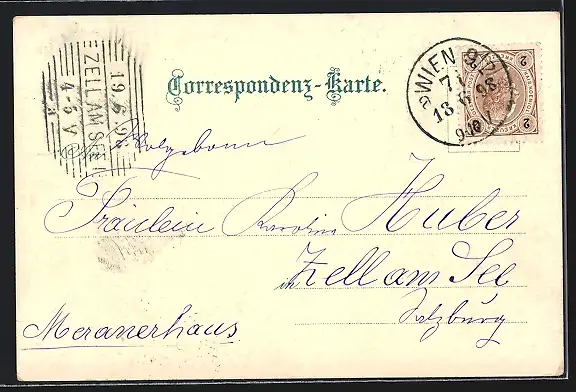 Correspondenz-Karte.
WIEN 9/2
18 6 98
2
2
19.6.9
ZELL AM SEE
4-5 V
Fräulein Karoline Huber
in Zell am See
Salzburg
Meranerhaus